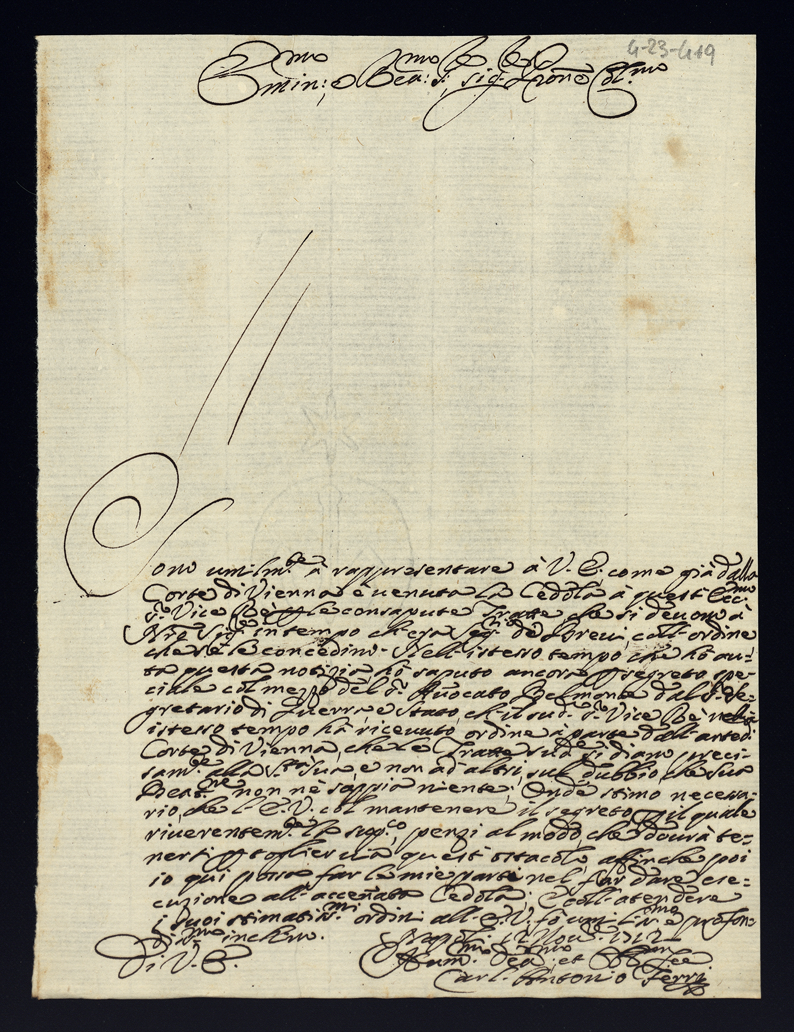 4-23-419
Emin:mo e Rev:mo Sig.r Sig.r e Prone Col.mo
Sono umilm.te à rappresentare à V. E. come già dalla
Corte di Vienna è venuta la Cedola à quest' Ecc:mo
S.r Vice Rè p le consapute Tratte che si devono à
N.ro Sig.re in tempo ch'era Seg.rio de Brevi, coll' ordine
che se le concedino. Nell' istesso tempo che hò auu-
ta questa notizia hò saputo ancora p segreto spe-
ciale col mezzo del S.r Avvocato Belmonte dal S.r Se-
gretario di Guerra, e Stato, ch' il sud.o S.r Vice Rè nell'
istesso tempo hà ricevuto ordine à parte dall' arte di
Corte di Vienna, che le Tratte sud.e si diano preci-
sam.te alla S.tà Sua, e non ad altri, sul dubbio che Sua
Beat.ne non nè sappia niente; Onde stimo necessa-
rio, che l' E. V. col mantenere il segreto, p il quale
riverentem.te la sup.co, penzi al modo, che dovrà te-
nersi p togliere via quest' ostacolo affinche poi
io qui possa far le mie parti nel far dare ese-
cuzione all' accennata Cedola, e coll' attendere
i suoi stimatis.mi ordini all' E. V. fò umiliss.ma e profon-
diss.ma inchino.
Napoli 12 Nov.e 1712
Di V. E.
Hum.mo Dev.mo et Obl.mo Ser.re
Carl' Antonio Ferri